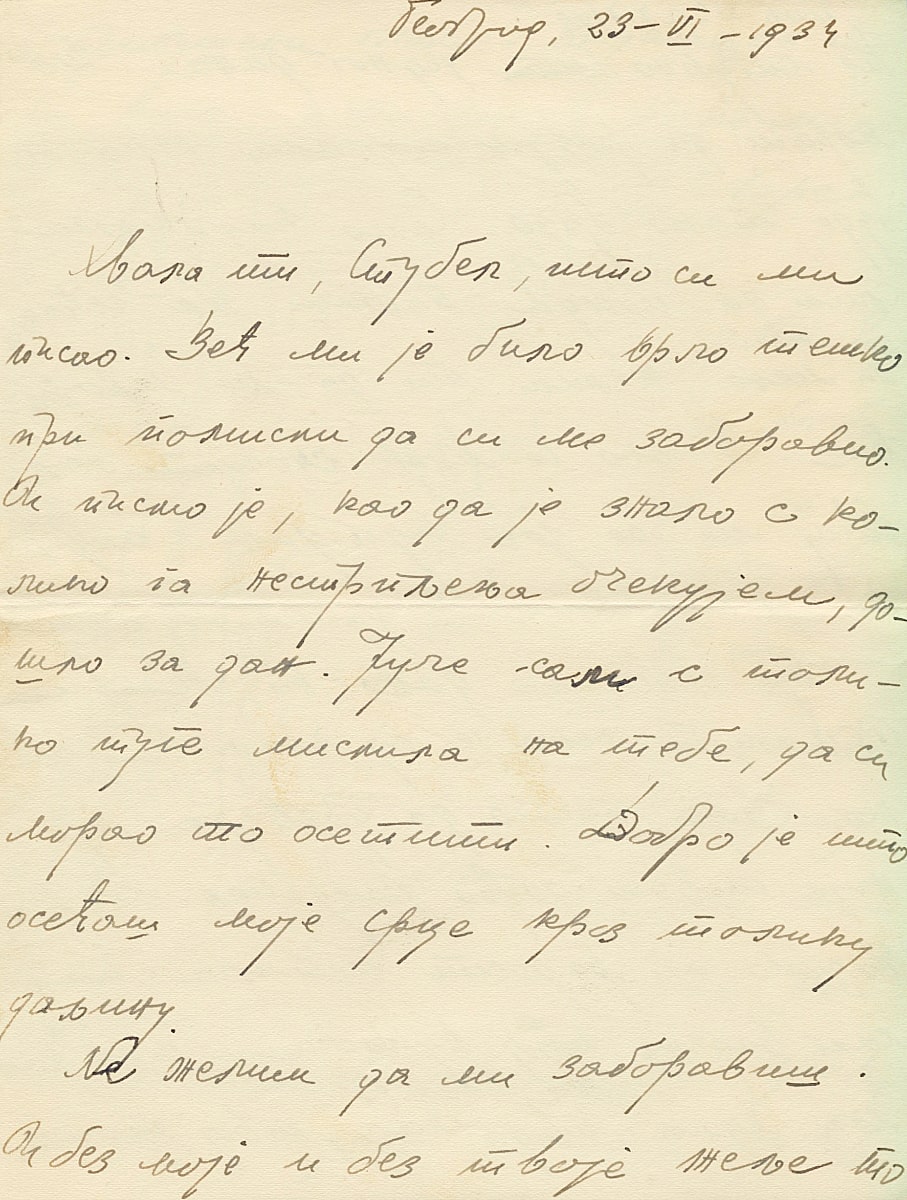 Београд, 23-VI-1934
Хвала ти, Стубел, што си ми
писао. Већ ми је било врло тешко
при помисли да си ме заборавио.
И писмо је, као да је знало с ко-
лико га нестрпљења очекујем, до-
шло за дан. Јуче сам с толи-
ко туге мислила на тебе, да си
морао то осетити. Добро је што
осећаш моје срце кроз толику
даљину.
Не желим да ми заборавиш.
И без моје и без твоје жеље то